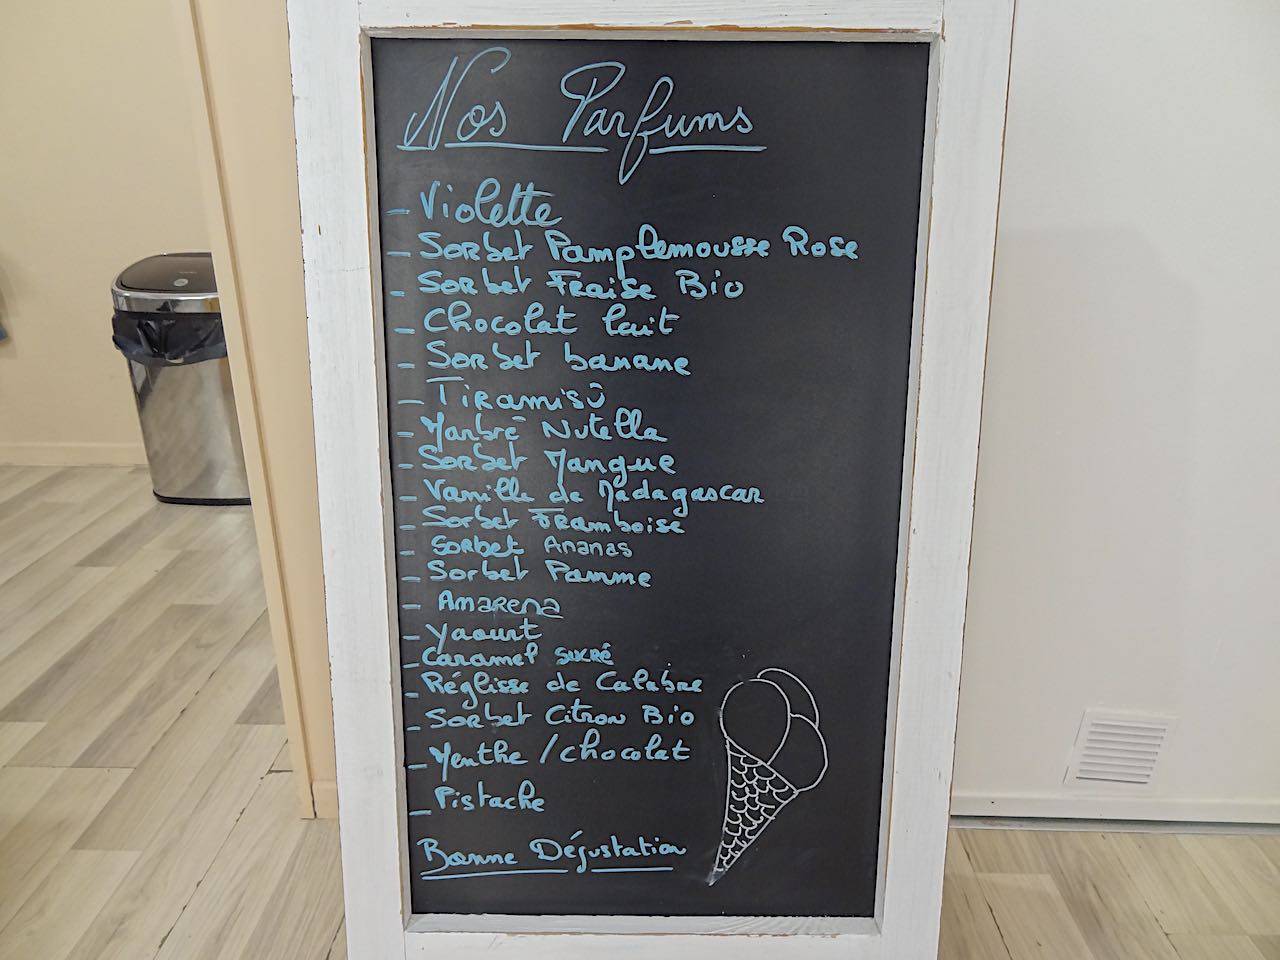 Nos Parfums
- Violette
- Sorbet Pamplemousse Rose
- Sorbet Fraise Bio
- Chocolat lait
- Sorbet banane
- Tiramisù
- Marbré Nutella
- Sorbet Mangue
- Vanille de Madagascar
- Sorbet Framboise
- Sorbet Ananas
- Sorbet Pomme
- Amarena
- Yaourt
- Caramel sucré
- Réglisse de Calabre
- Sorbet Citron Bio
- Menthe / chocolat
- Pistache
Bonne Dégustation